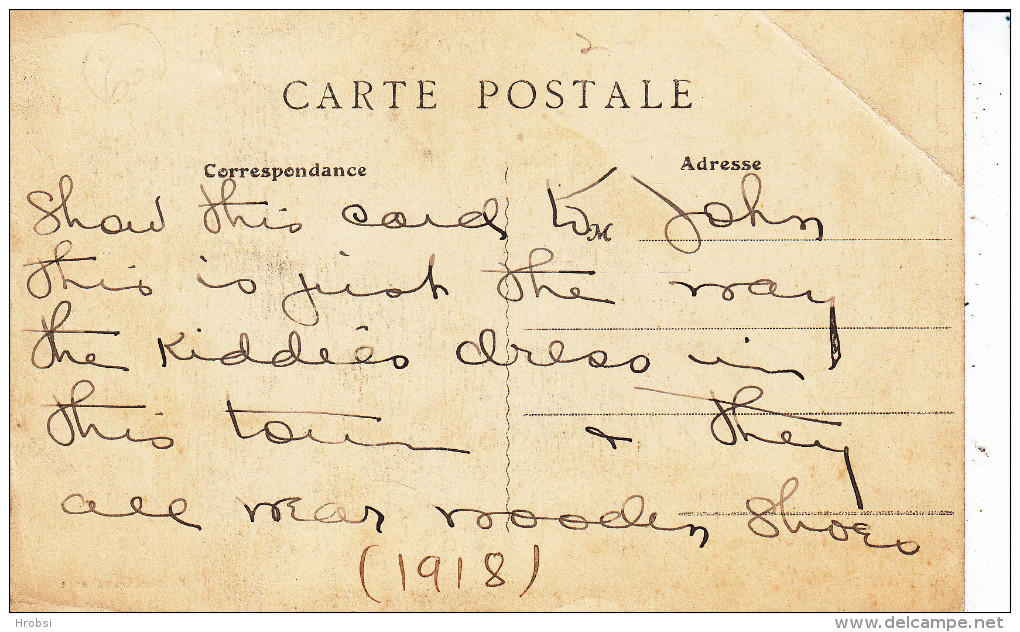 CARTE POSTALE
Correspondance Adresse
Show this card to John
this is just the way
the Kiddies dress in
this town & they
all wear wooden shoes
(1918)
Hrobsi www.delcampe.net